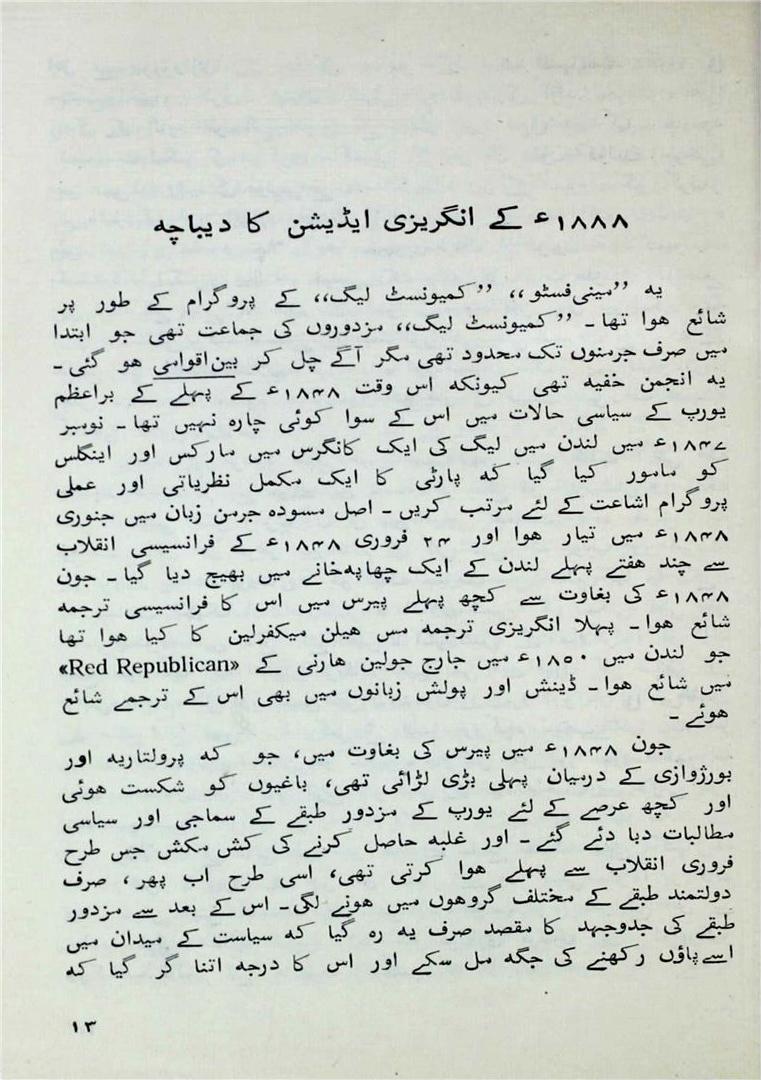 ۱۸۸۸ء کے انگریزی ایڈیشن کا دیباچہ
یہ ’’مینی‌فسٹو‘‘ ’’کمیونسٹ لیگ‘‘ کے پروگرام کے طور پر
شائع ہوا تھا۔ ’’کمیونسٹ لیگ‘‘ مزدوروں کی جماعت تھی جو ابتدا
میں صرف جرمنوں تک محدود تھی مگر آگے چل کر بین‌اقوامی ہو گئی۔
یہ انجمن خفیہ تھی کیونکہ اس وقت ۱۸۴۸ء کے پہلے کے براعظم
یورپ کے سیاسی حالات میں اس کے سوا کوئی چارہ نہیں تھا۔ نومبر
۱۸۴۷ء میں لندن میں لیگ کی ایک کانگرس میں مارکس اور اینگلس
کو مامور کیا گیا کہ پارٹی کا ایک مکمل نظریاتی اور عملی
پروگرام اشاعت کے لئے مرتب کریں۔ اصل مسودہ جرمن زبان میں جنوری
۱۸۴۸ء میں تیار ہوا اور ۲۴ فروری ۱۸۴۸ء کے فرانسیسی انقلاب
سے چند ہفتے پہلے لندن کے ایک چھاپہ‌خانے میں بھیج دیا گیا۔ جون
۱۸۴۸ء کی بغاوت سے کچھ پہلے پیرس میں اس کا فرانسیسی ترجمہ
شائع ہوا۔ پہلا انگریزی ترجمہ مس ہیلن میکفرلین کا کیا ہوا تھا
جو لندن میں ۱۸۵۰ء میں جارج جولین ہارنی کے «Red Republican»
میں شائع ہوا۔ ڈینش اور پولش زبانوں میں بھی اس کے ترجمے شائع
ہوئے۔
جون ۱۸۴۸ء میں پیرس کی بغاوت میں، جو کہ پرولتاریہ اور
بورژوازی کے درمیان پہلی بڑی لڑائی تھی، باغیوں کو شکست ہوئی
اور کچھ عرصے کے لئے یورپ کے مزدور طبقے کے سماجی اور سیاسی
مطالبات دبا دئے گئے۔ اور غلبہ حاصل کرنے کی کش مکش جس طرح
فروری انقلاب سے پہلے ہوا کرتی تھی، اسی طرح اب پھر، صرف
دولتمند طبقے کے مختلف گروہوں میں ہونے لگی۔ اس کے بعد سے مزدور
طبقے کی جدوجہد کا مقصد صرف یہ رہ گیا کہ سیاست کے میدان میں
اسے پاؤں رکھنے کی جگہ مل سکے اور اس کا درجہ اتنا گر گیا کہ
۱۳